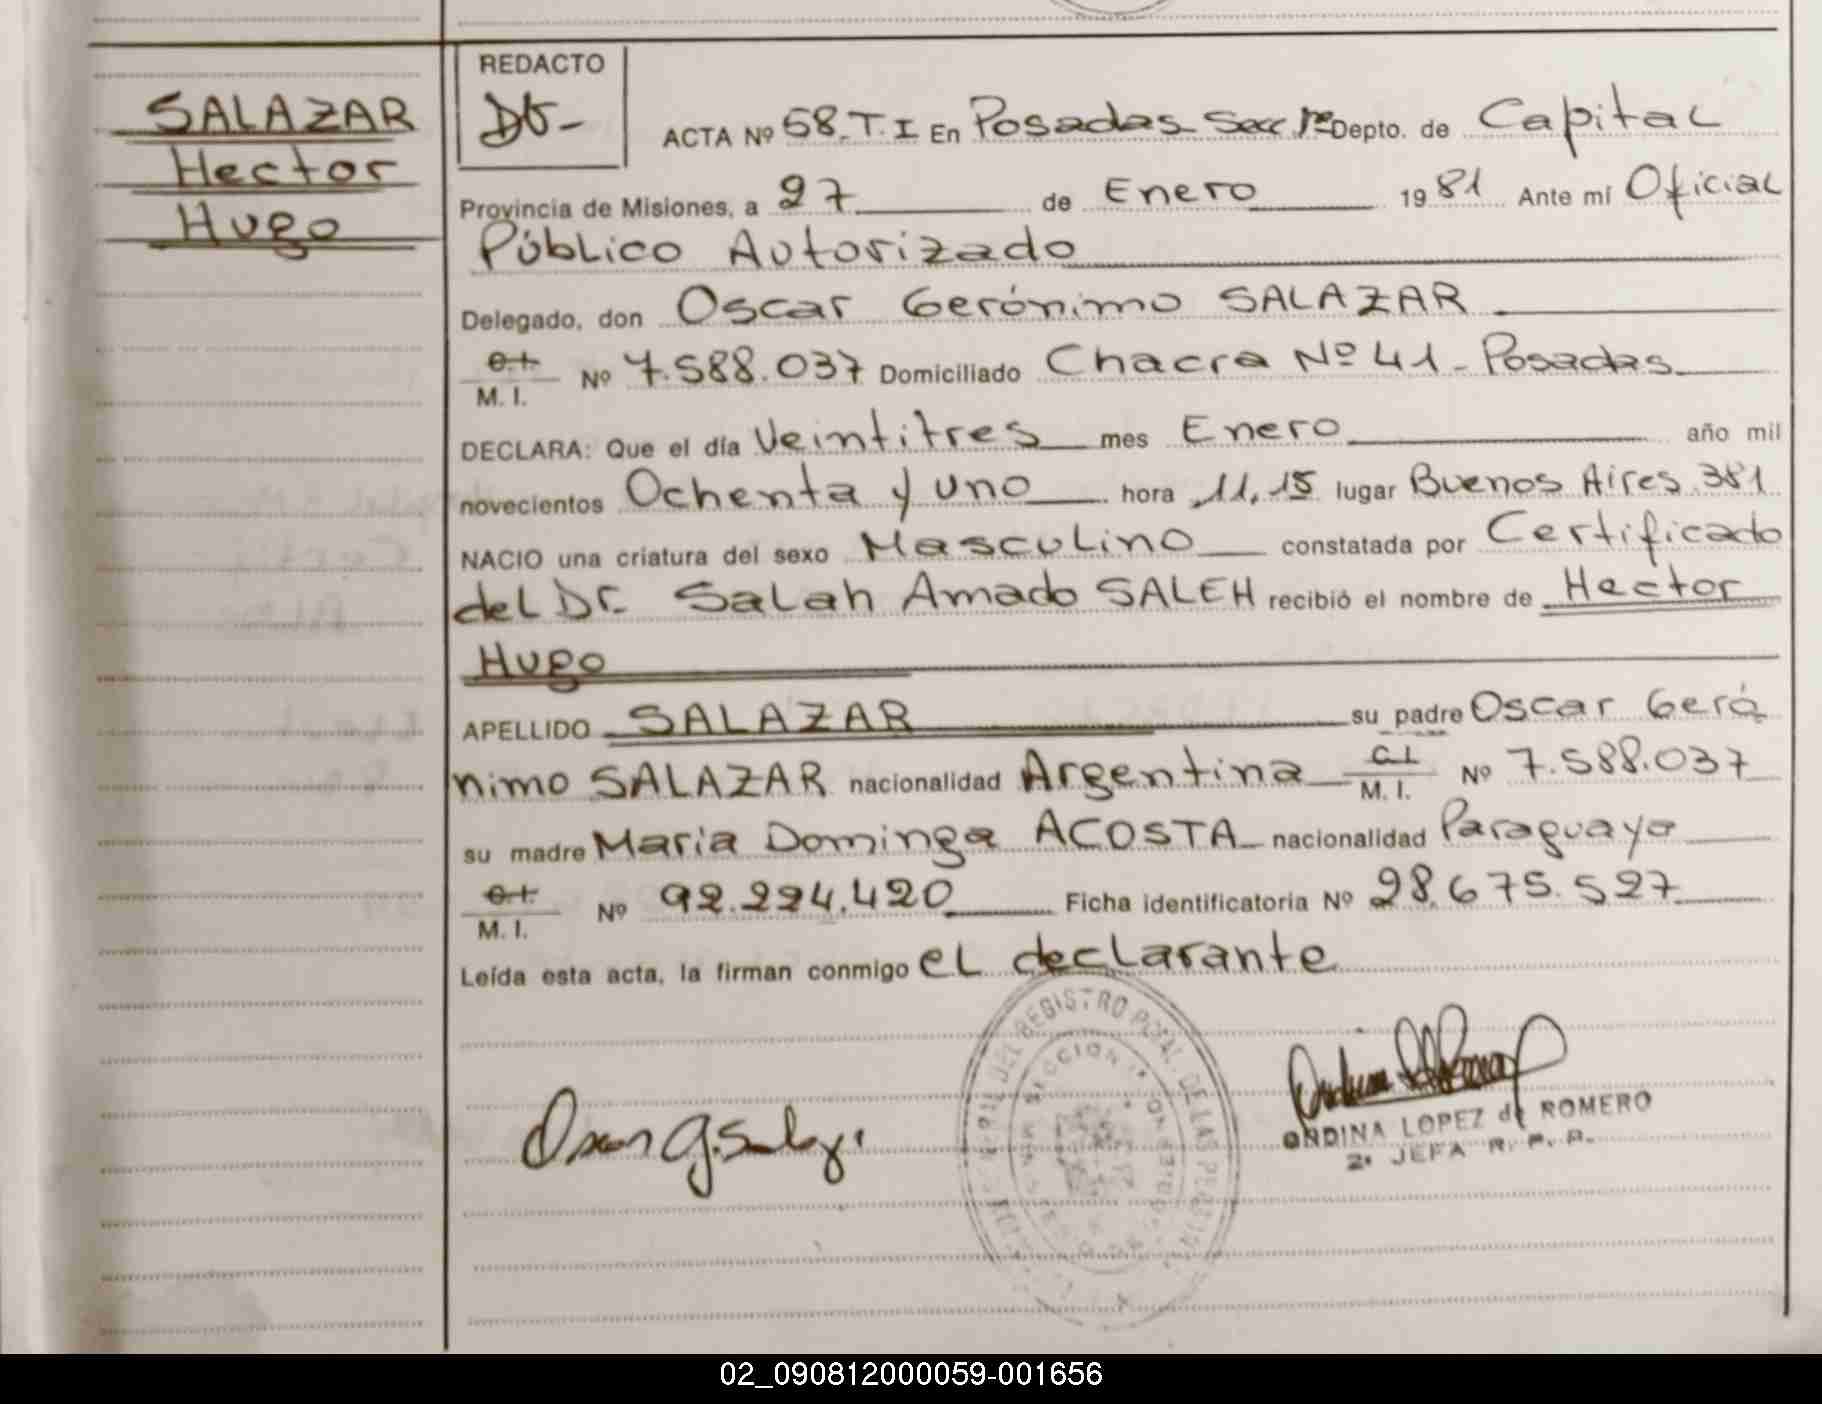 SALAZAR
Hector
Hugo
REDACTO
ACTA Nº 58. T. I En Posadas Secc 1ª Depto. de Capital
Provincia de Misiones, a 27 de Enero 1981 Ante mí Oficial
Público Autorizado
Delegado, don Oscar Gerónimo SALAZAR
C.I. M. I. Nº 7.588.037 Domiciliado Chacra Nº 41 - Posadas
DECLARA: Que el día Veintitres mes Enero año mil
novecientos Ochenta y uno hora 11,15 lugar Buenos Aires 381
NACIO una criatura del sexo Masculino constatada por Certificado
del Dr. Salah Amado SALEH recibió el nombre de Hector
Hugo
APELLIDO SALAZAR su padre Oscar Geró
nimo SALAZAR nacionalidad Argentina C.I. M. I. Nº 7.588.037
su madre Maria Dominga ACOSTA nacionalidad Paraguaya
C.I. M. I. Nº 92.224.420 Ficha identificatoria Nº 28.675.527
Leída esta acta, la firman conmigo el declarante
DEL REGISTRO PCIAL. DE LAS PERSONAS
SECCION 1ª
ORDINA LOPEZ de ROMERO
2ª JEFA R. P. P.
02_090812000059-001656